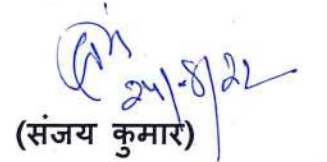 24/-8/22
(संजय कुमार)